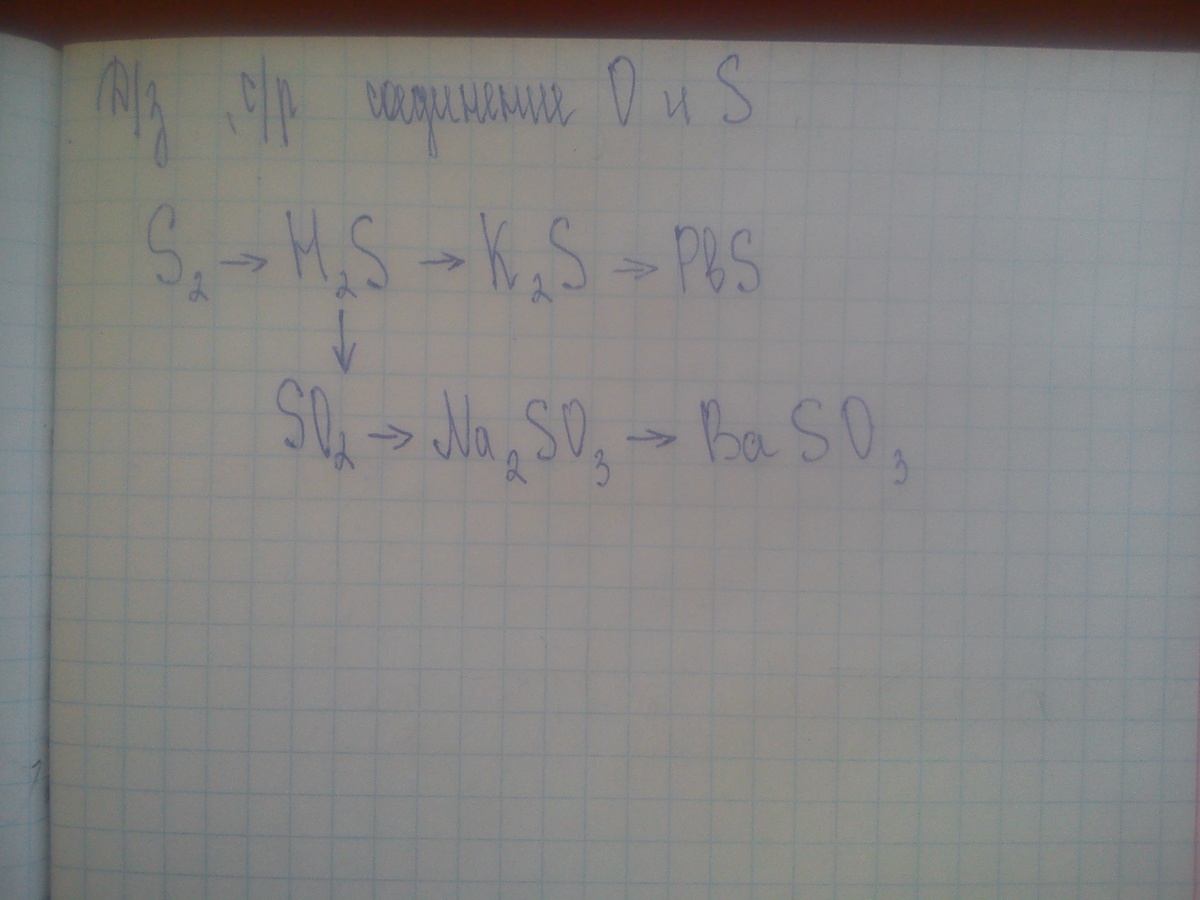 Д/з , с/р соединение O и S
S₂ → H₂S → K₂S → PbS
↓
SO₂ → Na₂SO₃ → BaSO₃